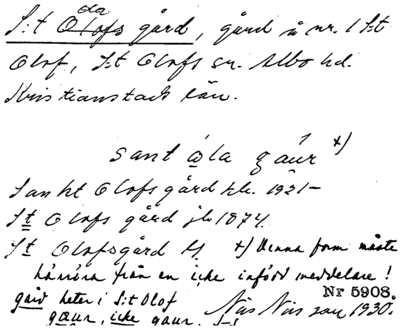 S:t Olofs gård, gård å nr. 1 S:t
Olof, S:t Olofs sn. Albo hd.
Kristianstads län.
sant ola gáur x)
Sankt Olofs gård kk. 1921–
St Olofs gård jb 1874.
St Olofsgård x) Denna form måste
härröra från en icke infödd meddelare!
gård heter i S:t Olof
gaur, icke gaur.
Nr 5908.
1930.